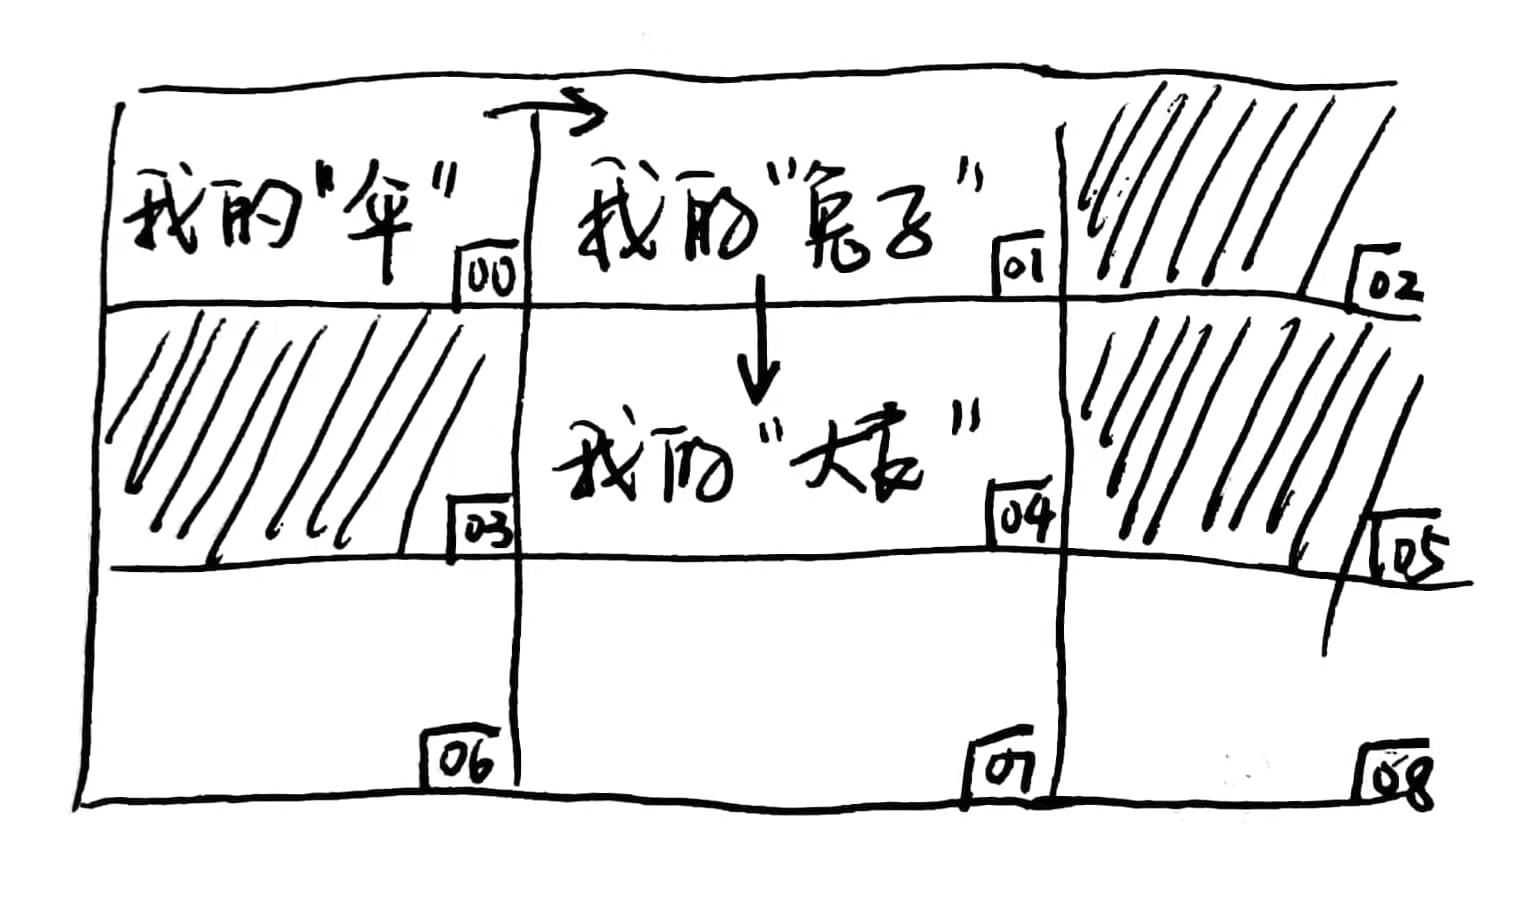 我的"伞"
00
我的"兔子"
01
02
03
我的"大衣"
04
05
06
07
08